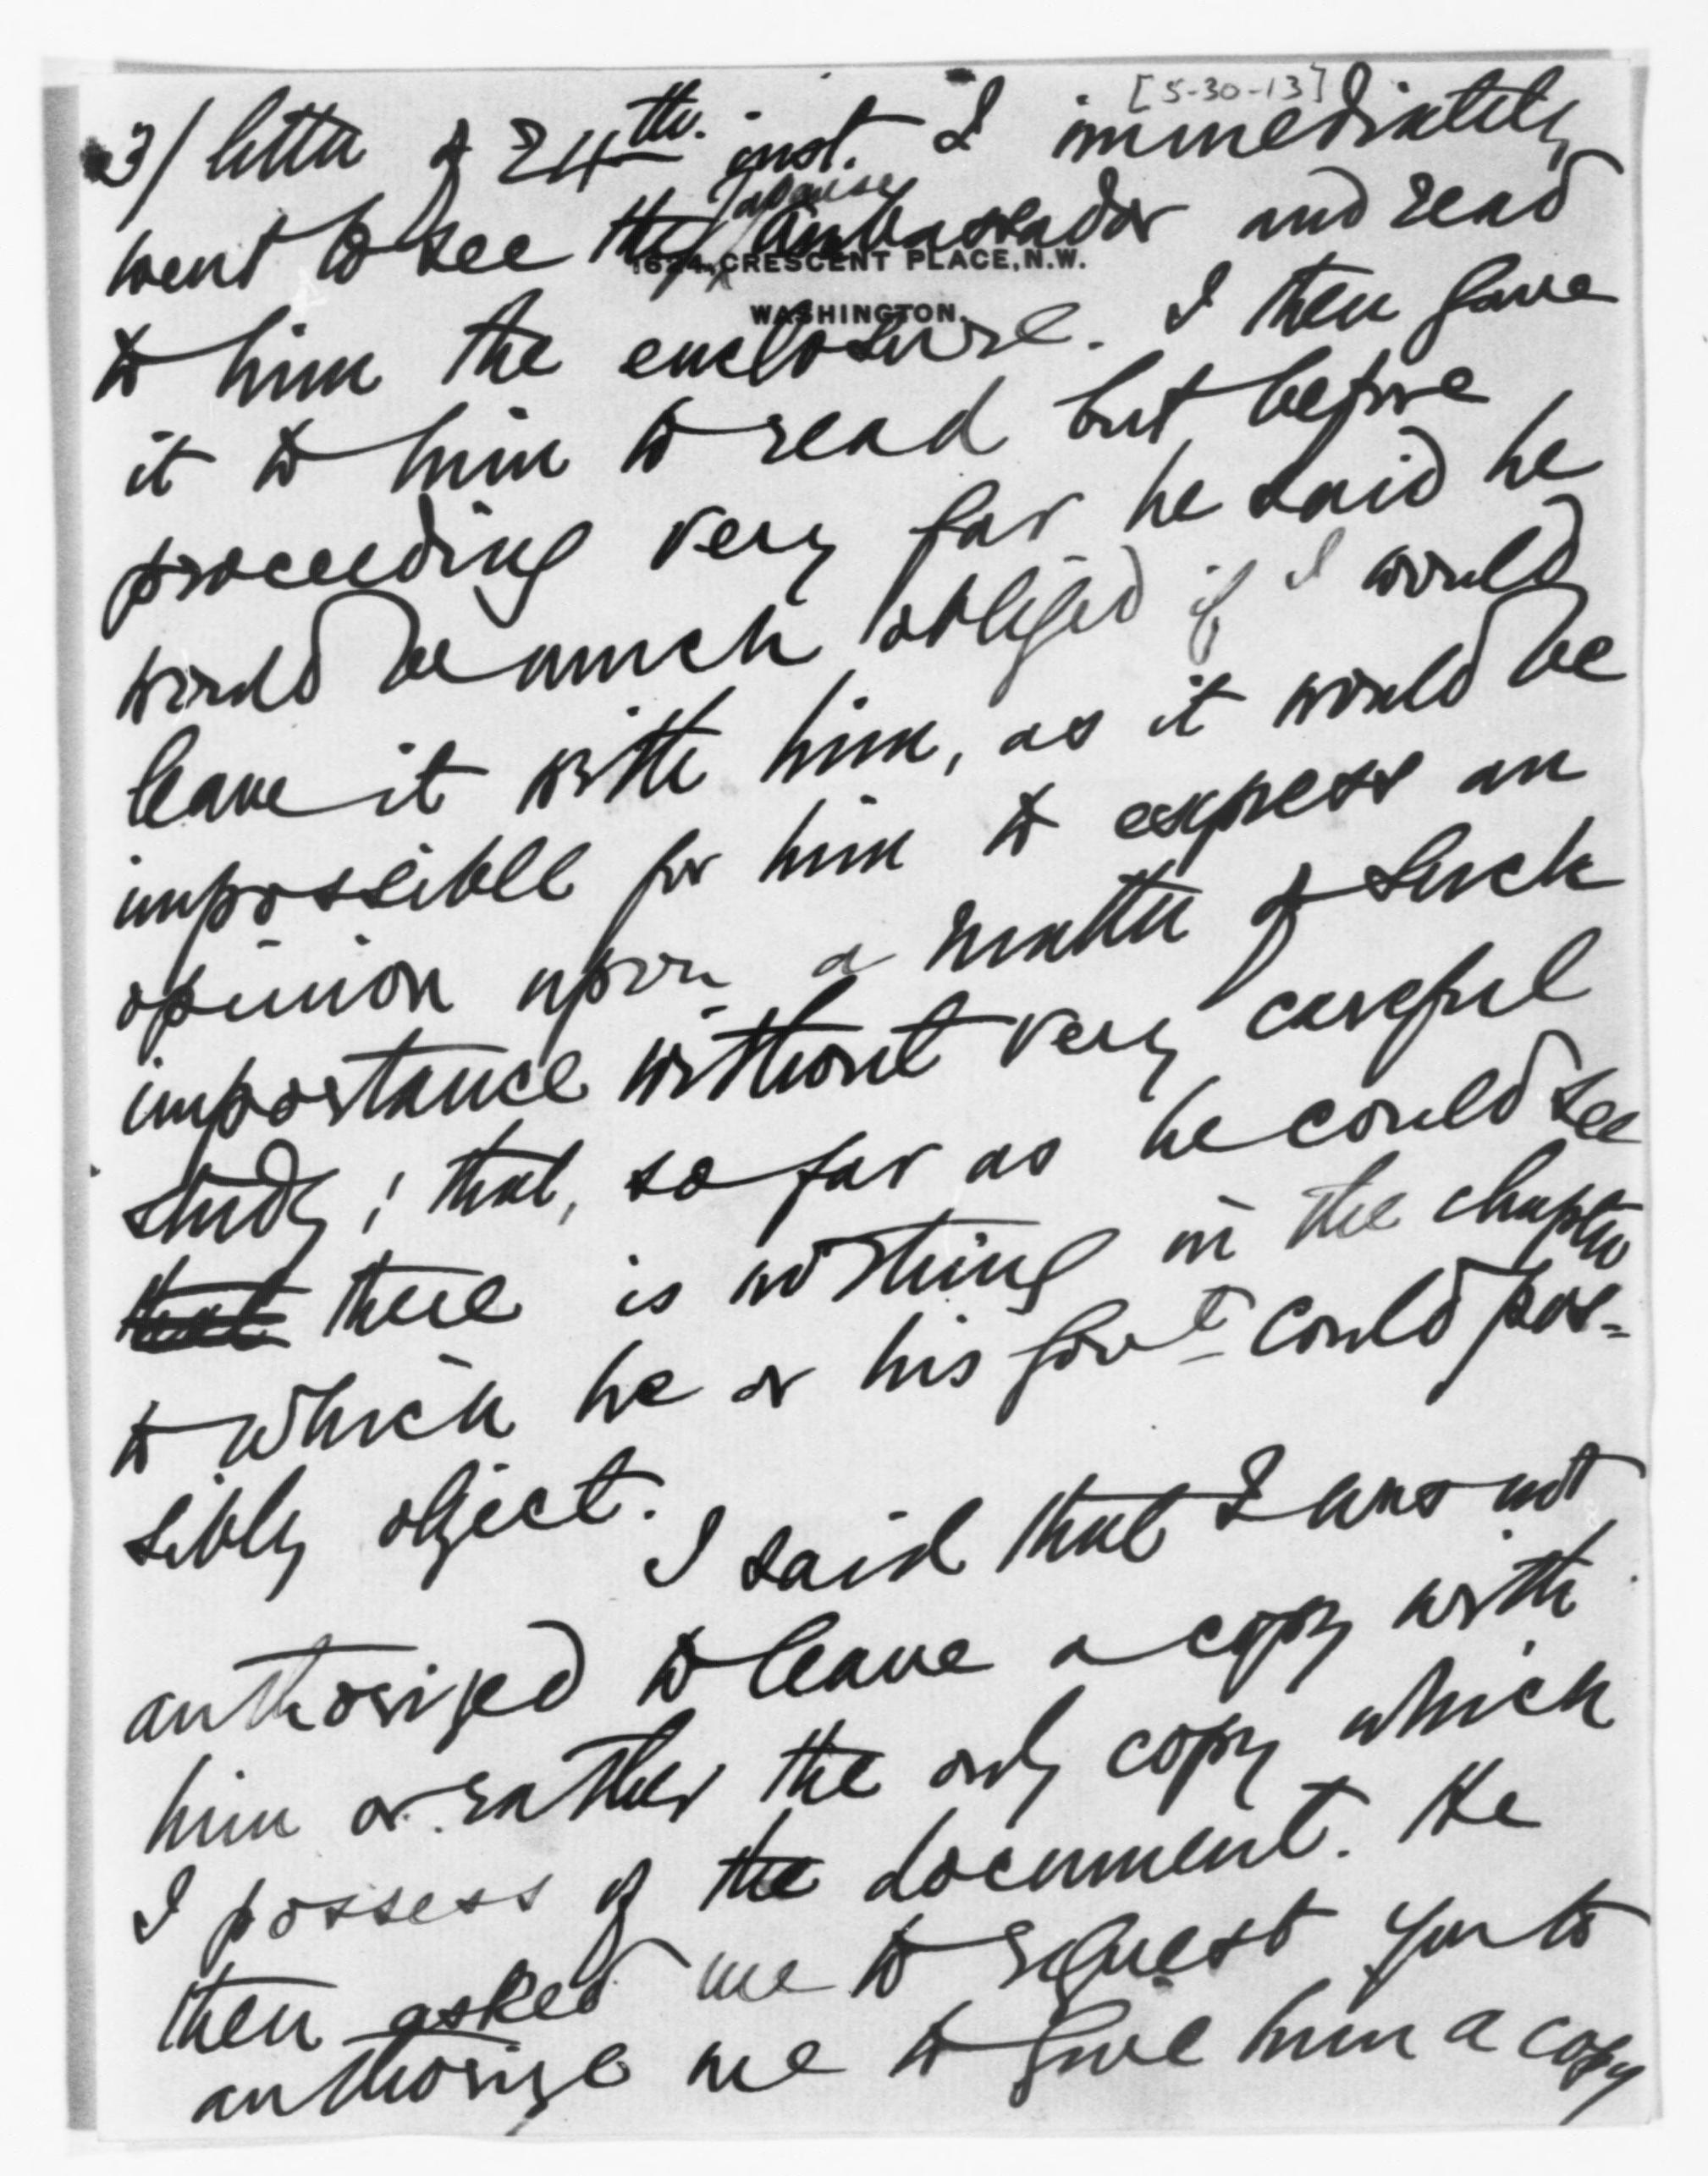 [5-30-13]
3/ letter of 24th. inst. I immediately
Japanese
went to see the Ambassador and read
1624, CRESCENT PLACE, N.W.
WASHINGTON.
to him the enclosure. I then gave
it to him to read but before
proceeding very far he said he
would be much obliged if I would
leave it with him, as it would be
impossible for him to express an
opinion upon a matter of such
importance without very careful
study; that, so far as he could see
that there is nothing in the chapter
to which he or his govt could pos=
sibly object.
I said that I was not
authorized to leave a copy with
him or rather the only copy which
I possess of the document. He
then asked me to request you to
authorize me to give him a copy